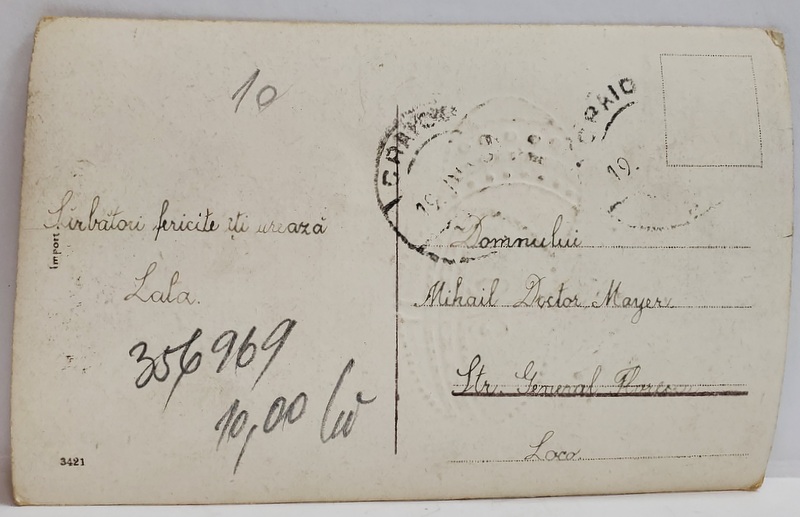 10
CRAIO
19.
Sărbători fericite îți urează
Lala.
Import
356969
10,00 lei
3421
Domnului
Mihail Doctor Mayer
Str. General
Loco.